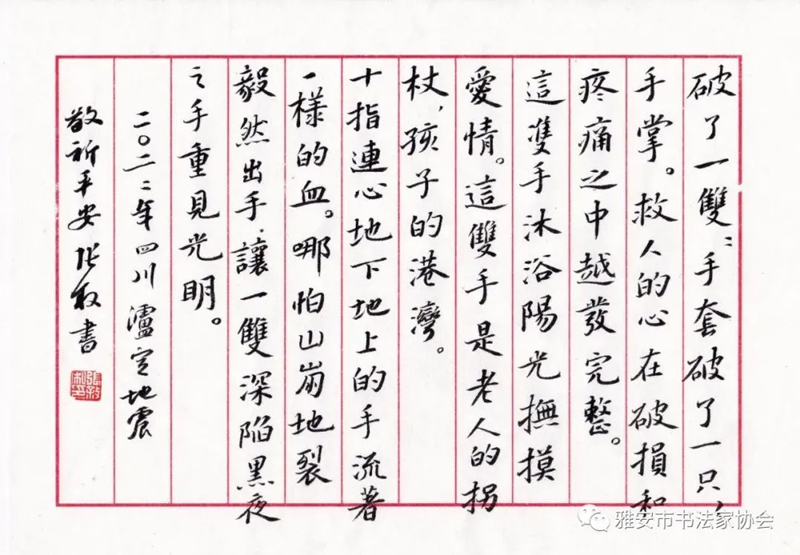 破了一雙;手套破了一只,
手掌。救人的心在破損和
疼痛之中越發完整。
這雙手沐浴陽光撫摸
愛情。這雙手是老人的拐
杖,孩子的港灣。
十指連心地下地上的手流著
一樣的血。哪怕山崩地裂
毅然出手,讓一雙深陷黑夜
之手重見光明。
二〇二二年四川瀘定地震
敬祈平安 張 書
雅安市书法家协会